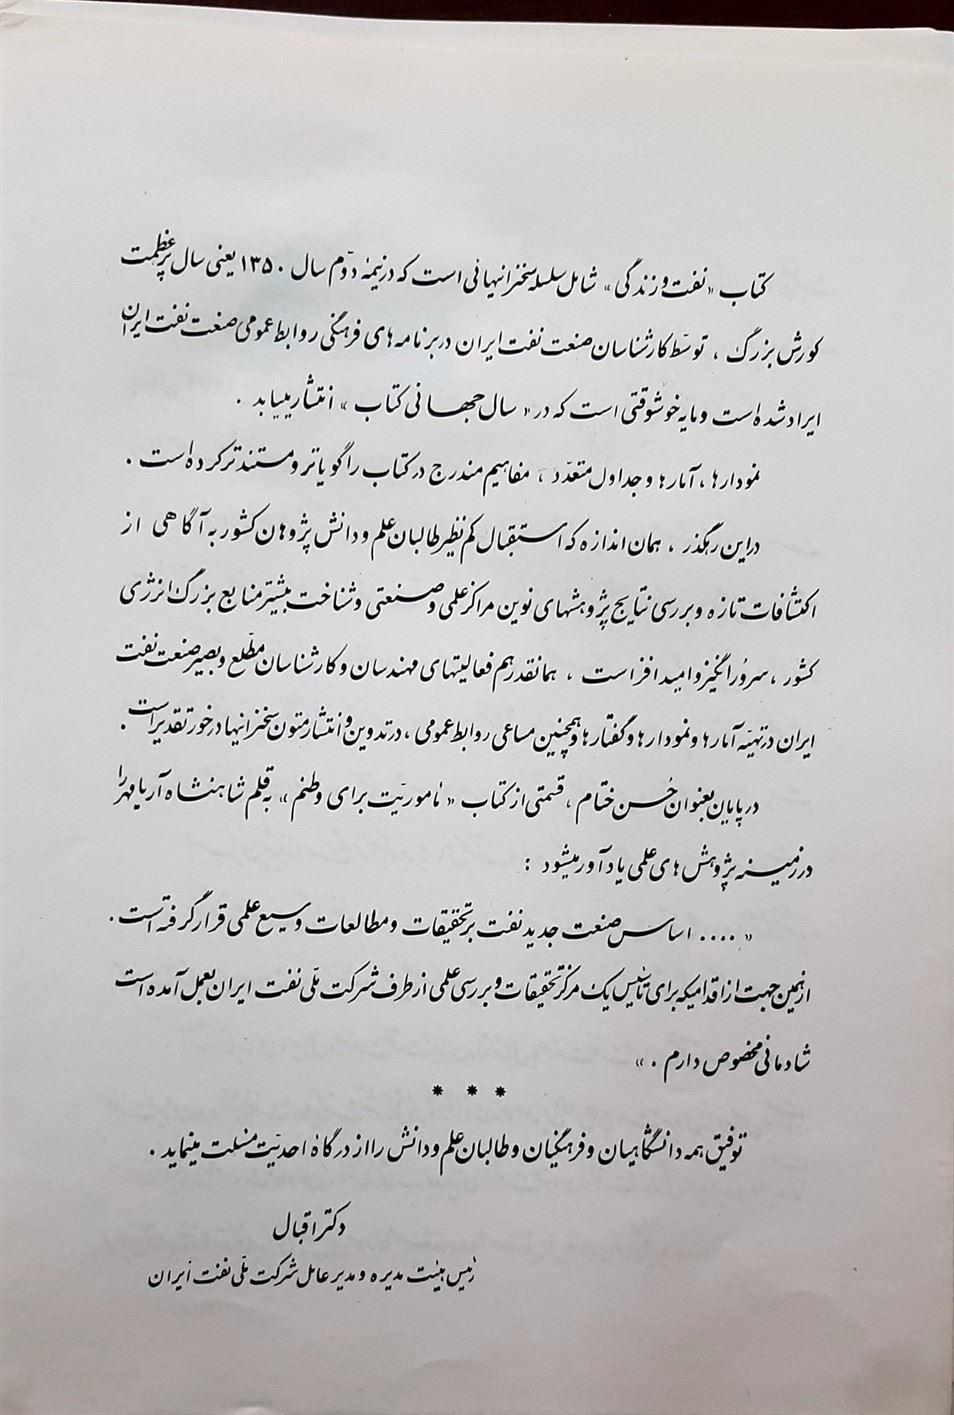 کتاب «نفت و زندگی» شامل سلسله سخنرانیهائی است که در نیمه دوّم سال ۱۳۵۰ یعنی سال پرعظمت
کورش بزرگ ، توسّط کارشناسان صنعت نفت ایران در برنامه های فرهنگی روابط عمومی صنعت نفت ایران
ایراد شده است و مایه خوشوقتی است که در « سال جهانی کتاب » انتشار مییابد .
نمودارها ، آمارها و جداول متعدّد ، مفاهیم مندرج در کتاب را گویاتر و مستندتر کرده است .
در این رهگذر ، همان اندازه که استقبال کم نظیر طالبان علم و دانش پژوهان کشور به آگاهی از
اکتشافات تازه و بررسی نتایج پژوهشهای نوین مراکز علمی و صنعتی و شناخت بیشتر منابع بزرگ انرژی
کشور ، سرورانگیز و امید افزاست ، همانقدر هم فعالیتهای مهندسان و کارشناسان مطّلع و بصیر صنعت نفت
ایران در تهیّه آمارها و نمودارها و گفتارها و همچنین مساعی روابط عمومی ، در تدوین و انتشار متون سخنرانیها درخور تقدیر است .
در پایان بعنوان حُسن ختام ، قسمتی از کتاب « مأموریّت برای وطنم » به قلم شاهنشاه آریامهر را
در زمینه پژوهش های علمی یادآور میشود :
« .... اساس صنعت جدید نفت بر تحقیقات و مطالعات وسیع علمی قرار گرفته است .
از همین جهت از اقدامیکه برای تأسیس یک مرکز تحقیقات و بررسی علمی از طرف شرکت ملّی نفت ایران بعمل آمده است
شادمانی مخصوص دارم . »
* * *
توفیق همه دانشگاهیان و فرهنگیان و طالبان علم و دانش را از درگاه احدیّت مسئلت مینماید .
دکتر اقبال
رئیس هیئت مدیره و مدیر عامل شرکت ملّی نفت ایران